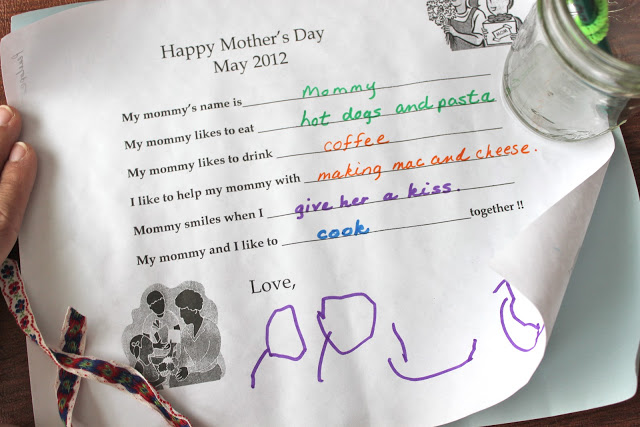 Happy Mother's Day
May 2012
My mommy's name is Mommy
My mommy likes to eat hot dogs and pasta
My mommy likes to drink coffee
I like to help my mommy with making mac and cheese.
Mommy smiles when I give her a kiss.
My mommy and I like to cook together !!
Love,